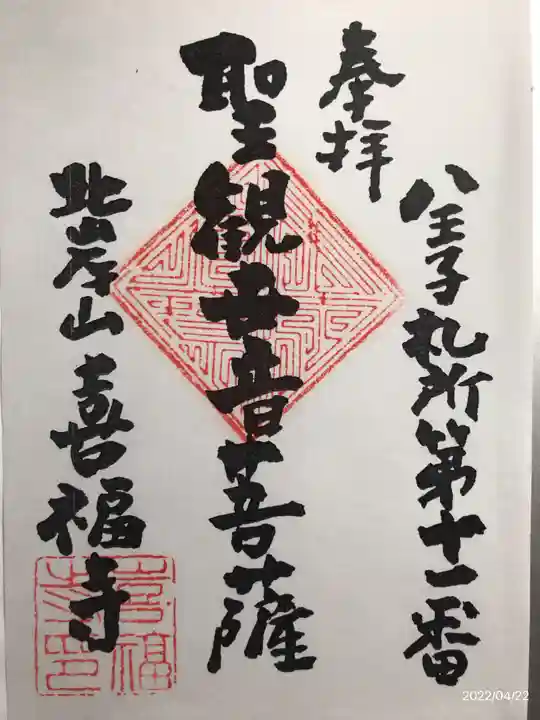 奉拝
八王子札所第十一番
聖観世音菩薩
北岸山喜福寺
喜福寺印
2022/04/22